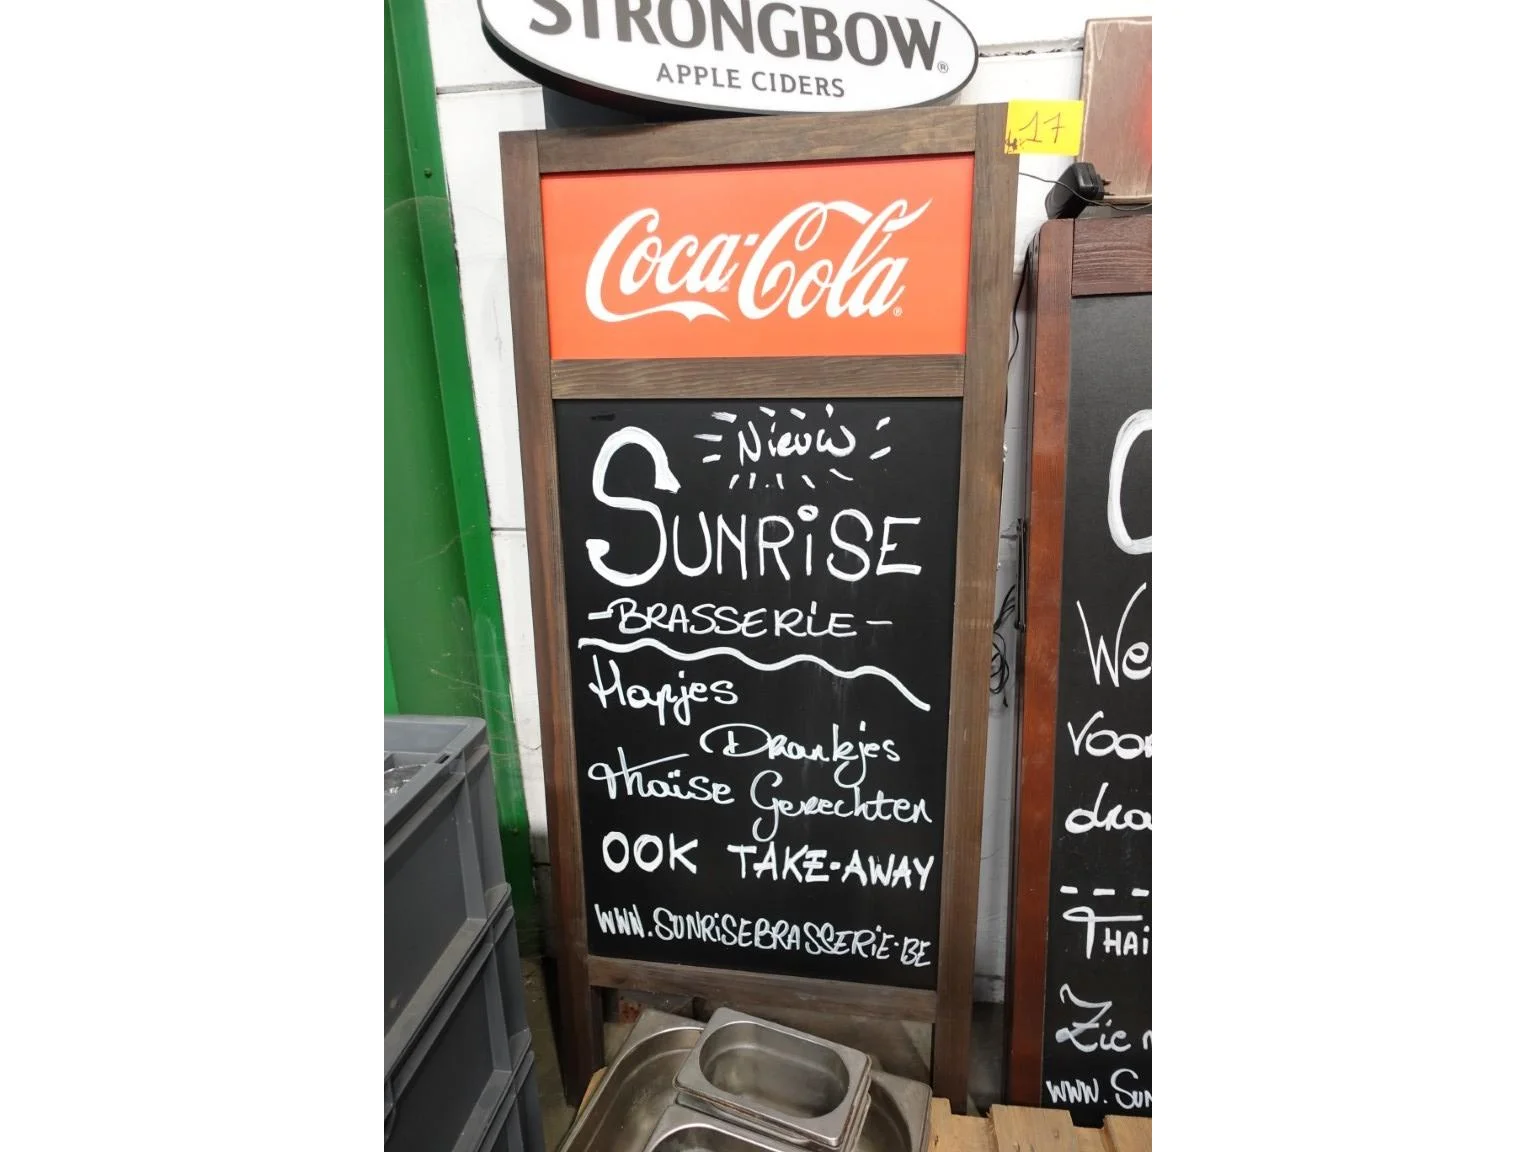 STRONGBOW®
APPLE CIDERS
17
Coca-Cola®
Nieuw
SUNRiSE
-BRASSERiE-
Hapjes
Drankjes
Thaïse Gerechten
OOK TAKE-AWAY
WWW.SUNRiSEBRASSERiE.BE
We
voor
THAi
Zie
WWW.SUN